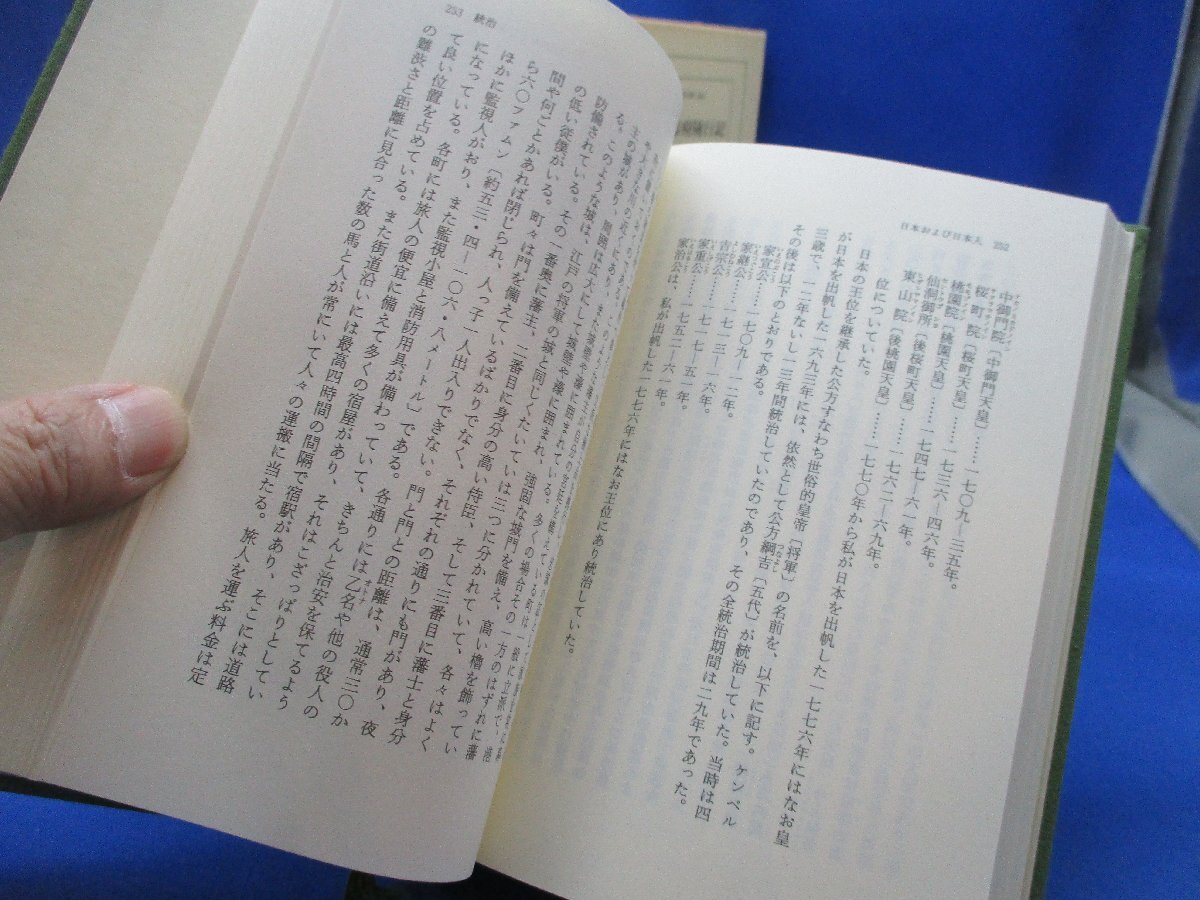 日本および日本人 252
中御門院〔中御門天皇〕……一七〇九―三五年。
桜町院〔桜町天皇〕……一七三六―四六年。
桃園院〔桃園天皇〕……一七四七―六一年。
仙洞御所〔後桜町天皇〕……一七六二―六九年。
東山院〔後桃園天皇〕……一七七〇年から私が日本を出帆した一七七六年にはなお皇
位についていた。
日本の王位を継承した公方すなわち世俗的皇帝〔将軍〕の名前を、以下に記す。ケンペル
が日本を出帆した一六九三年には、依然として公方綱吉〔五代〕が統治していた。当時は四
三歳で、一二年ないし一三年間統治していたのであり、その全統治期間は二九年であった。
その後は以下のとおりである。
家宣公……一七〇九―一二年。
家継公……一七一三―一六年。
吉宗公……一七一七―五一年。
家重公……一七五二―六一年。
家治公は、私が出帆した一七七六年にはなお王位にあり統治していた。
253 統治
主の城があり、周囲は
る。このような城は、広大にして城壁や濠に囲まれ、強固な城門を備え、高い櫓を飾ってい
防備されている。江戸の将軍の城と同じくたいていは三つに分かれていて、各々はよく
の低い従僕がいる。その一番奥に藩主、二番目に身分の高い侍臣、そして三番目に藩士と身分
間や何ごとかあれば閉じられ、人っ子一人出入りできない。門と門との距離は、通常三〇か
ら六〇ファムン〔約五三・四―一〇六・八メートル〕である。各通りには乙名や他の役人の
ほかに監視人がおり、また監視小屋と消防用具が備わっていて、きちんと治安を保てるよう
になっている。各町には旅人の便宜に備えて多くの宿屋があり、それはこざっぱりとしてい
て良い位置を占めている。また街道沿いには最高四時間の間隔で宿駅があり、そこには道路
の難渋さと距離に見合った数の馬と人が常にいて人々の運搬に当たる。旅人を運ぶ料金は定